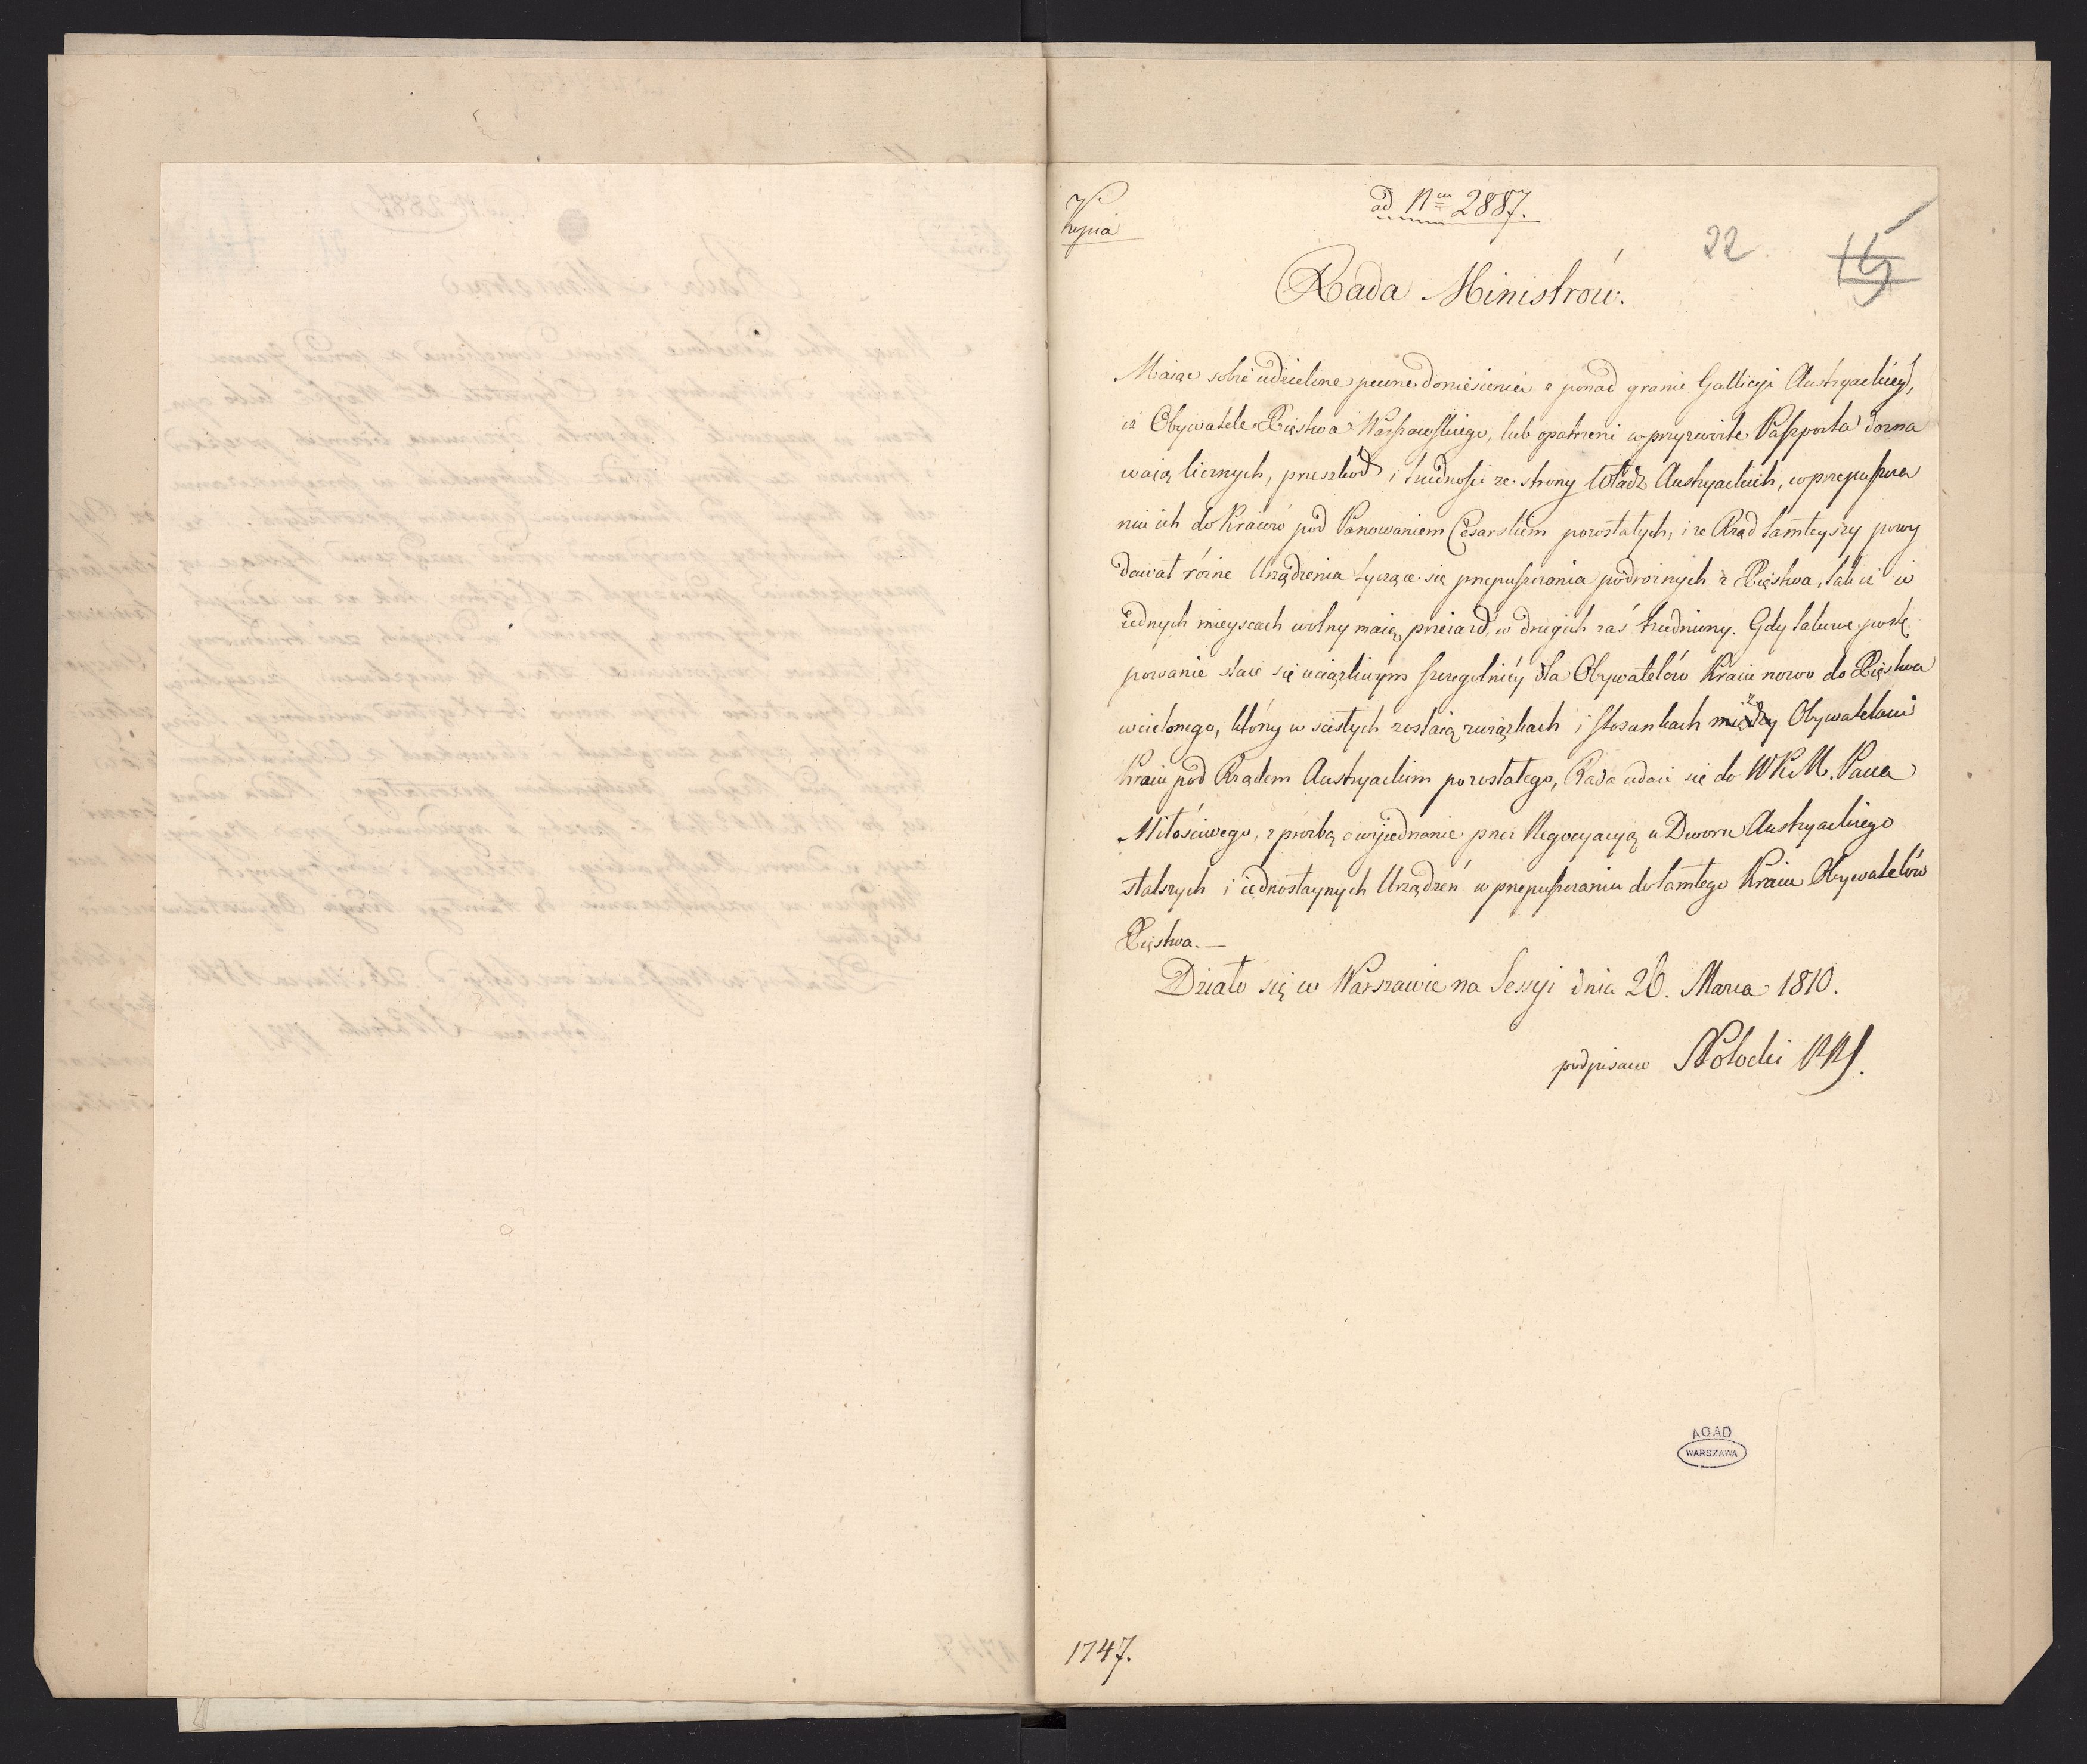 Kopia
ad Nrm 2887.
22
15
Rada Ministrów.
Maiąc sobie udzielone pewne doniesienia z ponad granic Gallicyi Austryackiey,
iż Obywatele Xięstwa Warszawskiego, lub opatrzeni w przyzwoite Paszporta dozna
waią licznych, przeszkód i trudności ze strony Władz Austryackich, w przepuszcza
niu ich do Kraiów pod Panowaniem Cesarskiem pozostałych, i że Rząd tamteyszy powy
dawał różne Urządzenia tyczące się przepuszczania podróżnych z Xięstwa, tak iż w
iednych mieyscach wolny maią przeiazd, w drugich zaś trudniony. Gdy takowe postę
powanie staie się uciążliwym szczególniéy dla Obywatelów Kraiu nowo do Xięstwa
wcielonego, którzy w ścisłych zostaią związkach i stosunkach z Obywatelami
Kraiu pod Rządem Austryackim pozostałego, Rada udaie się do WKM. Pana
Miłościwego, z prośbą o wyjednanie przez Negocyacyą u Dworu Austryackiego
stalszych i iednostaynych Urządzeń w przepuszczaniu do tamtego Kraiu Obywatelów
Xięstwa.—
Działo się w Warszawie na Sessyi dnia 26. Marca 1810.
podpisano S Potocki PRS.
AGAD
WARSZAWA
1747.